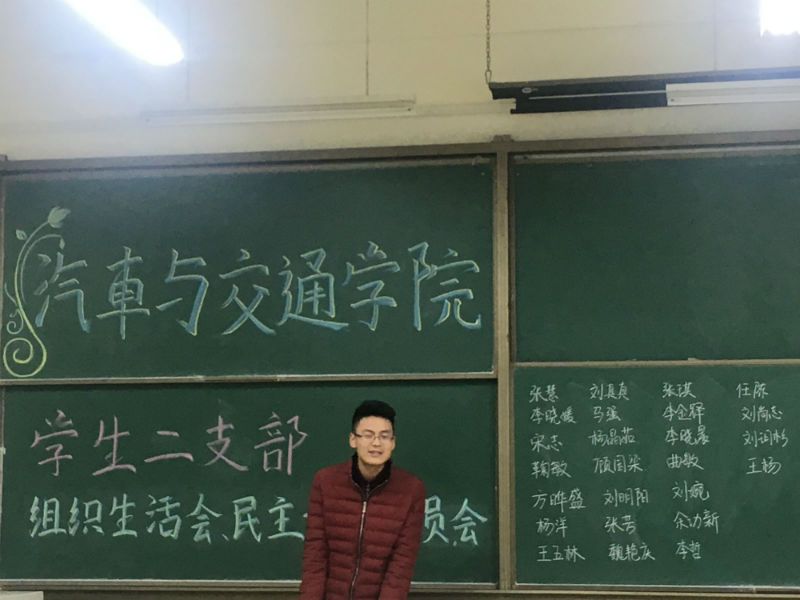 汽車与交通学院
学生二支部
组织生活会、民主 员会
张慧 刘真真 张琪 任原
李晓媛 马强 李金辉 刘尚志
宋志 杨晶茹 李晓晨 刘润杉
鞠敏 顾国梁 曲敏 王杨
万晔盛 刘明阳 刘婉
杨洋 张芳 余功新
王五林 魏艳庆 李哲